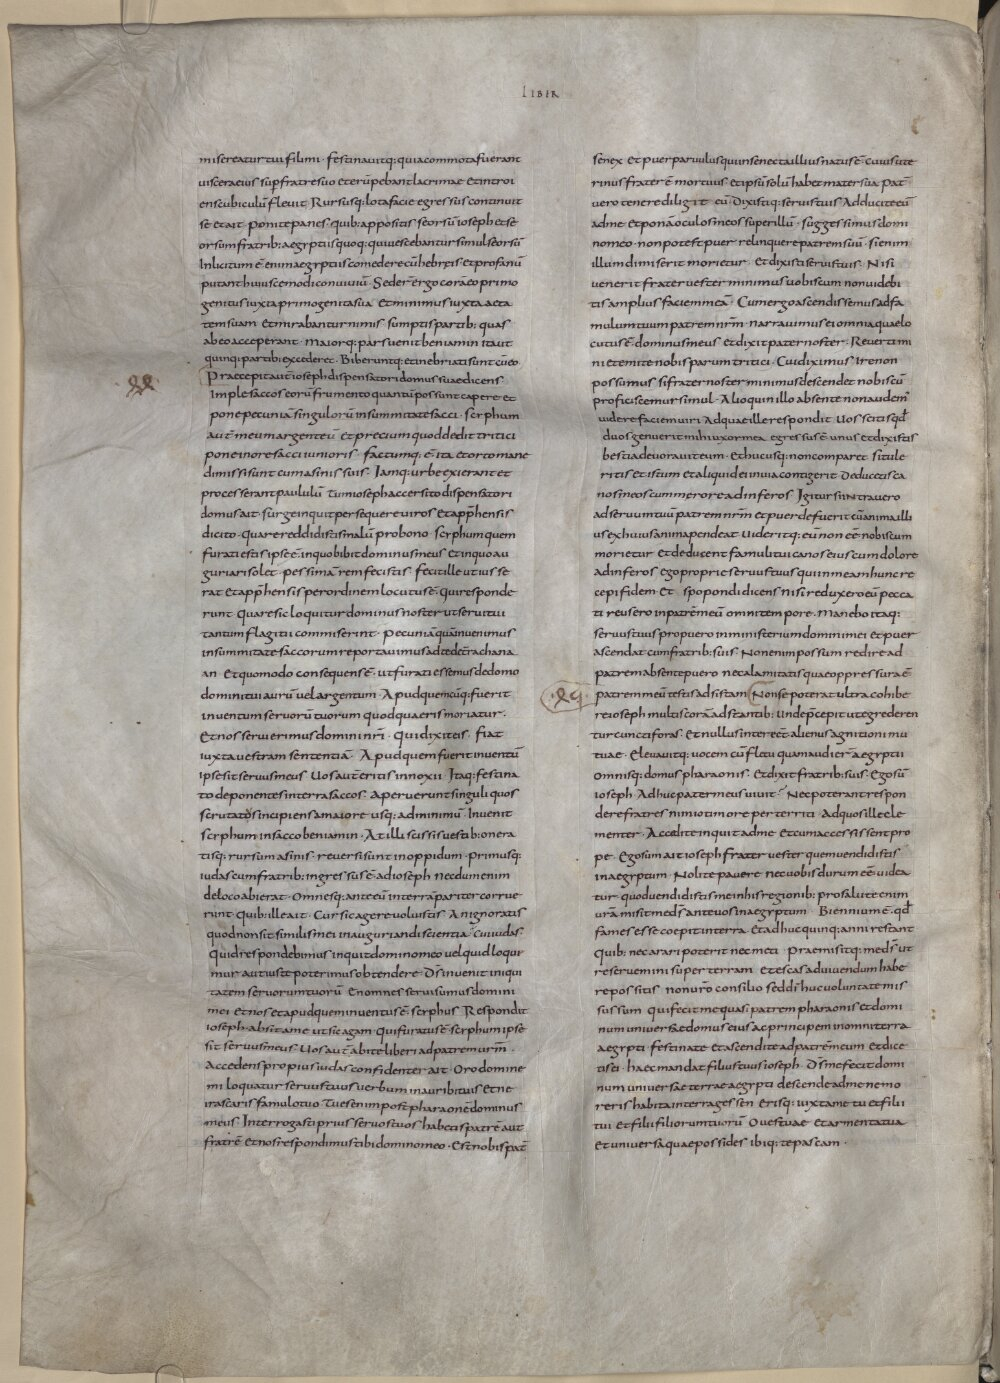 LIBER
misereatur tui filimi · festinavitq: quia commota fuerant
viscera eius sup fratre suo et erūpebant lacrimae et introi
ens cubiculū flevit Rursusq: lota facie egressus continuit
se et ait · ponite panes · quib: appositis seorsū ioseph et se
orsum fratrib: aegyptiis quoq: qui vescebantur simul seorsū
Inlicitum ē enim aegyptiis comedere cū hebreis et profanū
putant huiuscemodi convivium · Seder̄ ergo corā eo primo
genitus iuxta primogenita sua et minimus iuxta aeta
tem suam et mirabantur nimis · sumptis partib: quas
ab eo acceperant · maiorq: pars venit beniamin ita ut
quinq: partib: excederet · Biberuntq: et inebriati sunt cū eo
Praecepit aut̄ ioseph dispensatori domus suae dicens
Imple saccos eorū frumento quantū possunt capere et
pone pecuniā singulorū in summitate sacci · scyphum
aut̄ meum argenteū et precium quod dedit tritici
pone in ore sacci iunioris · factumq: ē ita et orto mane
dimissi sunt cum asinis suis · Iamq: urbe exierant et
processerant paululū Tum ioseph accersito dispensatori
domus ait · surge inquit persequere viros et app̄hensis
dicito · quare reddidistis malū pro bono · scyphum quem
furati estis ipse ē in quo bibit dominus meus et in quo au
guriari solet · pessimā rem fecistis · fecit ille ut ius se
rat et app̄hensis per ordinem locutus ē · qui responde
runt · Quare sic loquitur dominus noster ut servi tui
tantum flagitii commiserint · pecuniā quā invenimus
in summitate saccorum reportavimus ad te de tr̄a chana
an et quomodo consequens ē · ut furati essemus de domo
domini tui aurū vel argentum · Apud quemcūq: fuerit
inventum servorū tuorum quod quaeris moriatur ·
Et nos serui erimus domini nr̄i · Qui dixit eis · fiat
iuxta vestram sententiā · Apud quem fuerit inventū
ipse sit servus meus · Vos aut̄ eritis innoxii · Itaq: festina
to deponentes in terra saccos · aperuerunt singuli quos
scrutatos incipiens a maiore usq: ad minimū · Invenit
scyphum in sacco beniamin · At illi scissis vestib: onera
tisq: rursum asinis · reversi sunt in oppidum · primusq:
iudas cum fratrib: ingressus ē ad ioseph necdum enim
de loco abierat · Omnesq: ante eū in terrā pariter corrue
runt · quib: ille ait · Cur sic agere voluistis · An ignoratis
quod non sit similis mei in auguriandi scientia · Cui iudas ·
Quid respondebimus inquit domino meo vel quid loque
mur aut iuste poterimus obtendere · Ds̄ invenit iniqui
tatem servorum tuorū En omnes servi sumus domini
mei et nos et apud quem inventus ē · scyphus Respondit
ioseph · absit a me ut sic agam · Qui furatus ē · scyphum ipse
sit servus meus · Vos aut̄ abite liberi ad patrem urm̄ ·
Accedens propius iudas confidenter ait · Oro domine
mi loquatur servus tuus verbum in auribus tuis et ne
irascaris famulo tuo Tu es enim post pharaonē dominus
meus · Interrogasti prius servos tuos habetis patrē aut
fratrē et nos respondimus tibi domino meo · Est nobis pat̄
senex et puer parvulus qui in senecta illius natus ē · cuius ute
rinus frater ē mortuus et ipsū solū habet mater sua pat̄
vero tenere diligit eū · Dixistiq: servis tuis Adducite eū
ad me et ponā oculos meos super illū · suggessimus domi
no meo · non potest puer relinquere patrem suū · si enim
illum dimiserit morietur · Et dixisti servis tuis · Nisi
venerit frater vester minimus vobiscum non videbi
tis amplius faciem meā · Cum ergo ascendissemus ad fa
mulum tuum patrem nrm̄ · narravimus ei omnia quae lo
cutus ē · dominus meus et dixit pater noster · Revertimi
ni et emite nobis parum tritici · Cui diximus Ire non
possumus si frater noster minimus descendet nobiscū
proficiscemur simul · Alioquin illo absente non audem̄
videre faciem viri Ad quae ille respondit Vos scitis qd̄
duos genuerit mihi uxor mea egressus ē unus et dixistis
bestia devoravit eum · Et hucusq: non comparet si tule
ritis et istum et aliquid ei in via contigerit Deducetis ca
nos meos cum merore ad inferos · Igitur si intravero
ad servum tuū patrem nrm̄ et puer defuerit cū anima illi
us ex huius anima pendeat · Videritq: eū non eē nobiscum
morietur et deducent famuli tui canos eius cum dolore
ad inferos Ego proprie servus tuus qui in meam hunc re
cepi fidem Et spopondi dicens Nisi reduxero eū pecca
ti reus ero in patrē meū omni tempore · Manebo itaq:
servus tuus pro puero in ministerium domini mei et puer
ascendat cum fratrib: suis · Non enim possum redire ad
patrem absente puero ne calamitatis quae oppressura ē
patrem meū testis adsistam Non se poterat ultra cohibe
re ioseph multis corā adstantib: Unde p̄cepit ut egrederen
tur cuncti foras · Et nullus interect̄ alienus agnitioni mu
tuae · Elevavitq: vocem cū fletu quam audier̄ aegyptii
omnisq: domus pharaonis · Et dixit fratrib: suis · Ego sū
ioseph · Adhuc pater meus vivit · Nec poterant respon
dere fratres nimio timore perterriti Ad quos ille cle
menter · Accedite inquit ad me et cum accessissent pro
pe · Ego sum ait ioseph frater vester quem vendidistis
in aegyptum · Nolite pavere nec vobis durum eē videa
tur quod vendidistis me in his regionib: pro salute enim
urā misit me ds̄ ante vos in aegyptum · Biennium ē · qd̄
fames esse coepit in terra · Et adhuc quinq: anni restant
Quib: nec arari poterit nec meti · Praemisitq: me ds̄ ut
reservemini super terram et escas ad vivendum habe
re possitis non uro consilio sed di huc voluntate mis
sus sum · qui fecit me quasi patrem pharaonis et domi
num universae domus eius ac principem in omni terra
aegypti · festinate et ascendite ad patrē meum et dice
tis ei · haec mandat filius tuus ioseph · Ds̄ me fecit domi
num universae terrae aegypti descende ad me ne mo
reris habita in terra gessen Erisq: iuxta me tu et filii
tui et filii filiorum tuorū Oves tuae et armenta tua
et universa quae possides ibiq: te pascam ·